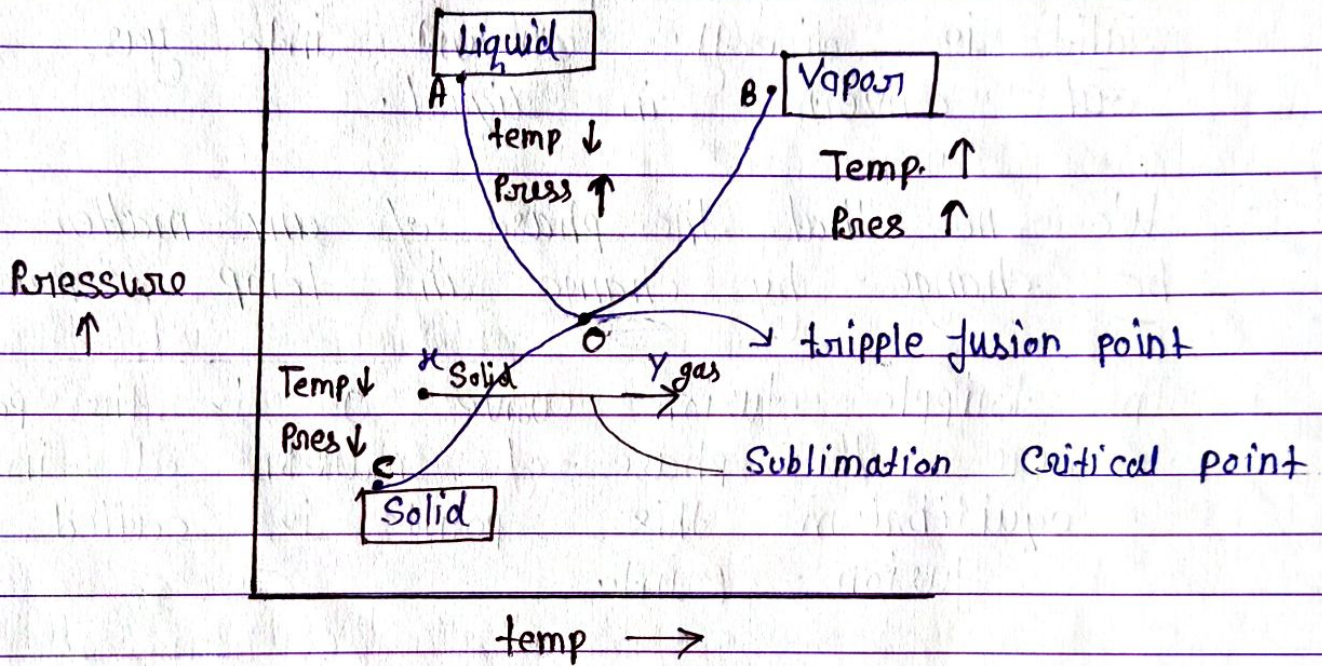 Liquid
A
B
Vapor
temp ↓
Press ↑
Temp. ↑
Pres ↑
Pressure
↑
O
tripple fusion point
Temp ↓
x Solid
Y gas
Pres ↓
C
Sublimation Critical point
Solid
temp →